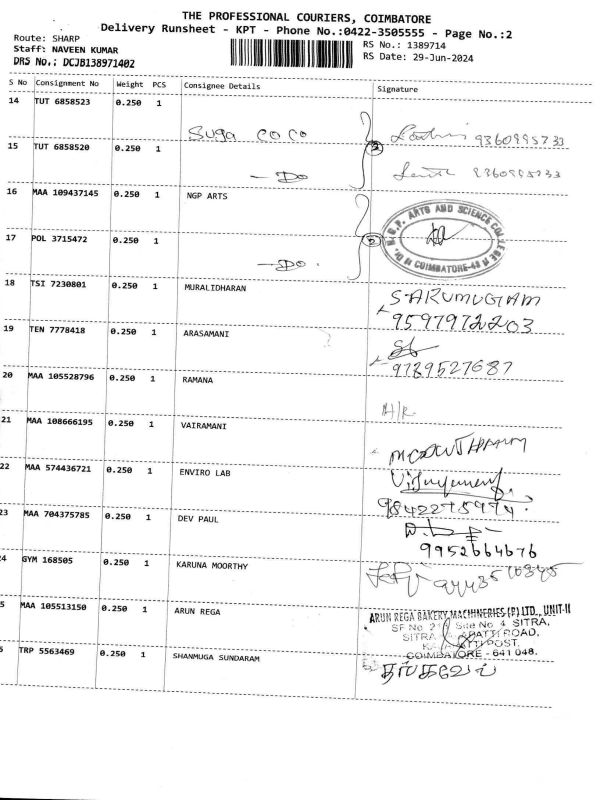 THE PROFESSIONAL COURIERS, COIMBATORE
Delivery Runsheet - KPT - Phone No.:0422-3505555 - Page No.:2
Route: SHARP
Staff: NAVEEN KUMAR
DRS No.: DCJB138971402
RS No.: 1389714
RS Date: 29-Jun-2024
S No Consignment No Weight PCS Consignee Details Signature
14 TUT 6858523 0.250 1 Suga COCO 9360995733
15 TUT 6858520 0.250 1 - Do 9360995733
16 MAA 109437145 0.250 1 NGP ARTS
DR. N.G.P. ARTS AND SCIENCE COLLEGE
COIMBATORE-48
17 POL 3715472 0.250 1 - Do.
18 TSI 7230801 0.250 1 MURALIDHARAN S. ARUMUGAM
9597972203
19 TEN 7778418 0.250 1 ARASAMANI
9789527687
20 MAA 105528796 0.250 1 RAMANA
21 MAA 108666195 0.250 1 VAIRAMANI
22 MAA 574436721 0.250 1 ENVIRO LAB
9842275974.
23 MAA 704375785 0.250 1 DEV PAUL
9952664676
24 GYM 168505 0.250 1 KARUNA MOORTHY
5 MAA 105513150 0.250 1 ARUN REGA
ARUN REGA BAKERY MACHINERIES (P) LTD., UNIT-II
SF No Site No 4 SITRA,
SITRA ROAD,
POST,
COIMBATORE - 641 048.
6 TRP 5563469 0.250 1 SHANMUGA SUNDARAM தங்கவேல்